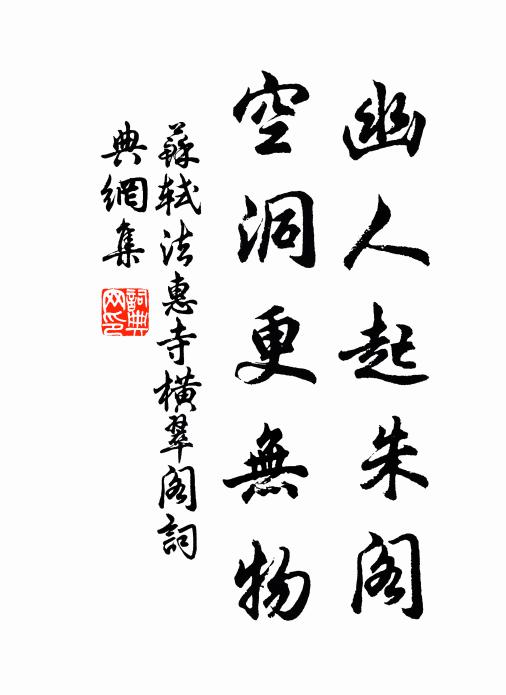 幽人起朱阁
空洞更無物
蘇軾法惠寺橫翠阁詞
典網集
詞典
网印